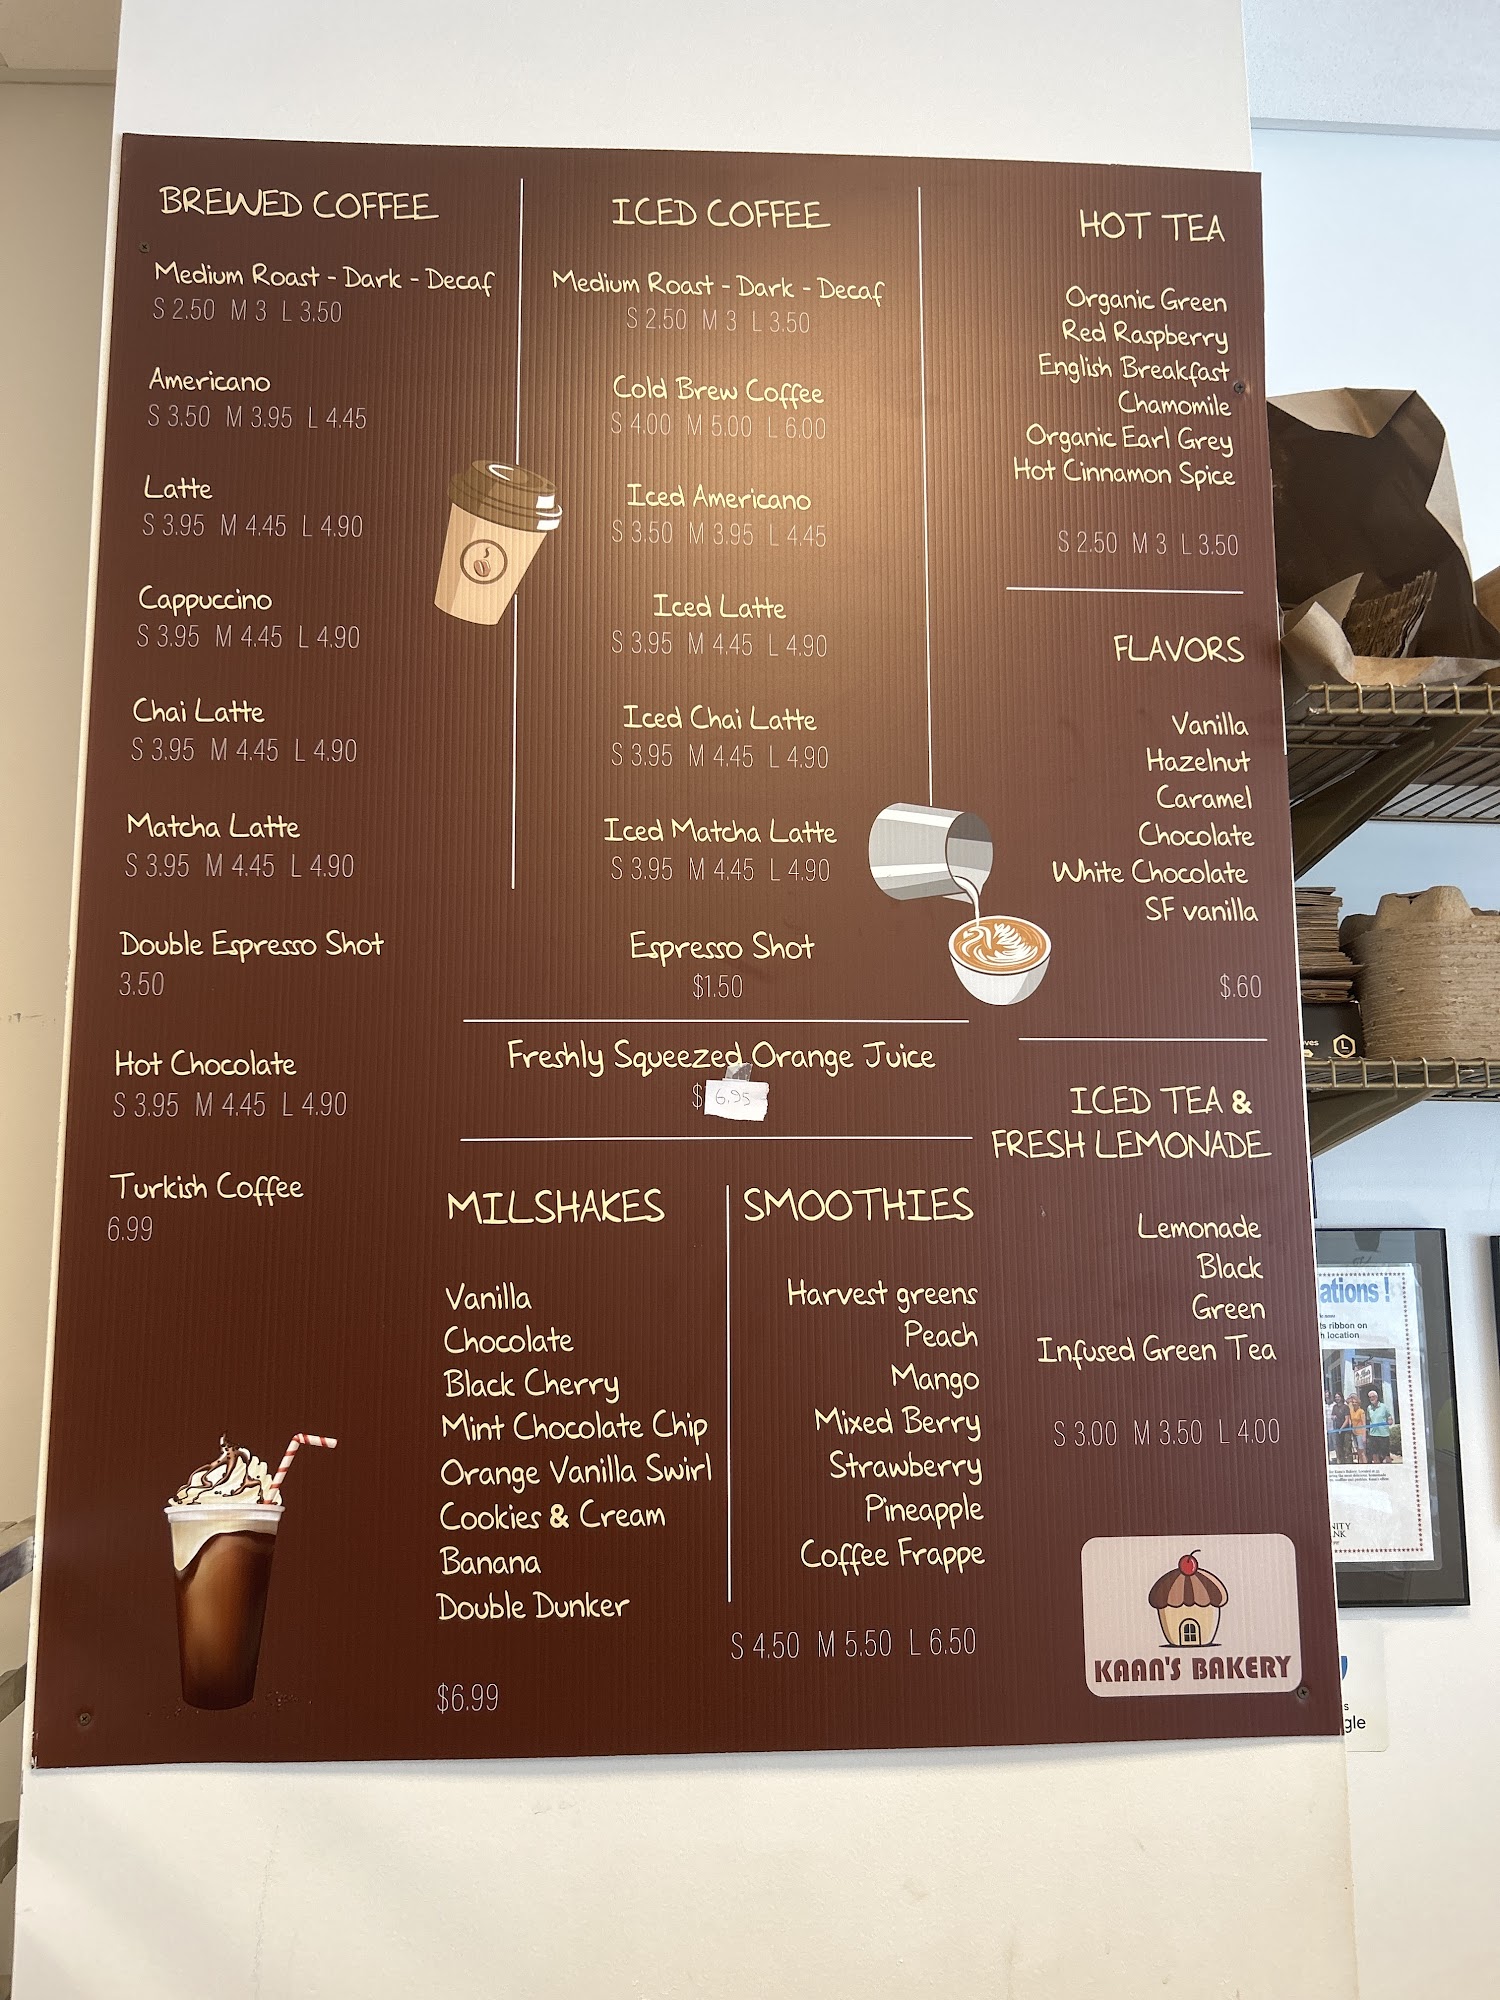 BREWED COFFEE
Medium Roast - Dark - Decaf
S 2.50 M 3 L 3.50
Americano
S 3.50 M 3.95 L 4.45
Latte
S 3.95 M 4.45 L 4.90
Cappuccino
S 3.95 M 4.45 L 4.90
Chai Latte
S 3.95 M 4.45 L 4.90
Matcha Latte
S 3.95 M 4.45 L 4.90
Double Espresso Shot
3.50
Hot Chocolate
S 3.95 M 4.45 L 4.90
Turkish Coffee
6.99
ICED COFFEE
Medium Roast - Dark - Decaf
S 2.50 M 3 L 3.50
Cold Brew Coffee
S 4.00 M 5.00 L 6.00
Iced Americano
S 3.50 M 3.95 L 4.45
Iced Latte
S 3.95 M 4.45 L 4.90
Iced Chai Latte
S 3.95 M 4.45 L 4.90
Iced Matcha Latte
S 3.95 M 4.45 L 4.90
Espresso Shot
$1.50
Freshly Squeezed Orange Juice
$ 6.95
MILSHAKES
Vanilla
Chocolate
Black Cherry
Mint Chocolate Chip
Orange Vanilla Swirl
Cookies & Cream
Banana
Double Dunker
$6.99
SMOOTHIES
Harvest greens
Peach
Mango
Mixed Berry
Strawberry
Pineapple
Coffee Frappe
S 4.50 M 5.50 L 6.50
HOT TEA
Organic Green
Red Raspberry
English Breakfast
Chamomile
Organic Earl Grey
Hot Cinnamon Spice
S 2.50 M 3 L 3.50
FLAVORS
Vanilla
Hazelnut
Caramel
Chocolate
White Chocolate
SF vanilla
$.60
ICED TEA &
FRESH LEMONADE
Lemonade
Black
Green
Infused Green Tea
S 3.00 M 3.50 L 4.00
KAAN'S BAKERY
ves L
ations!
ts ribbon on
h location
NITY
NK
s
gle